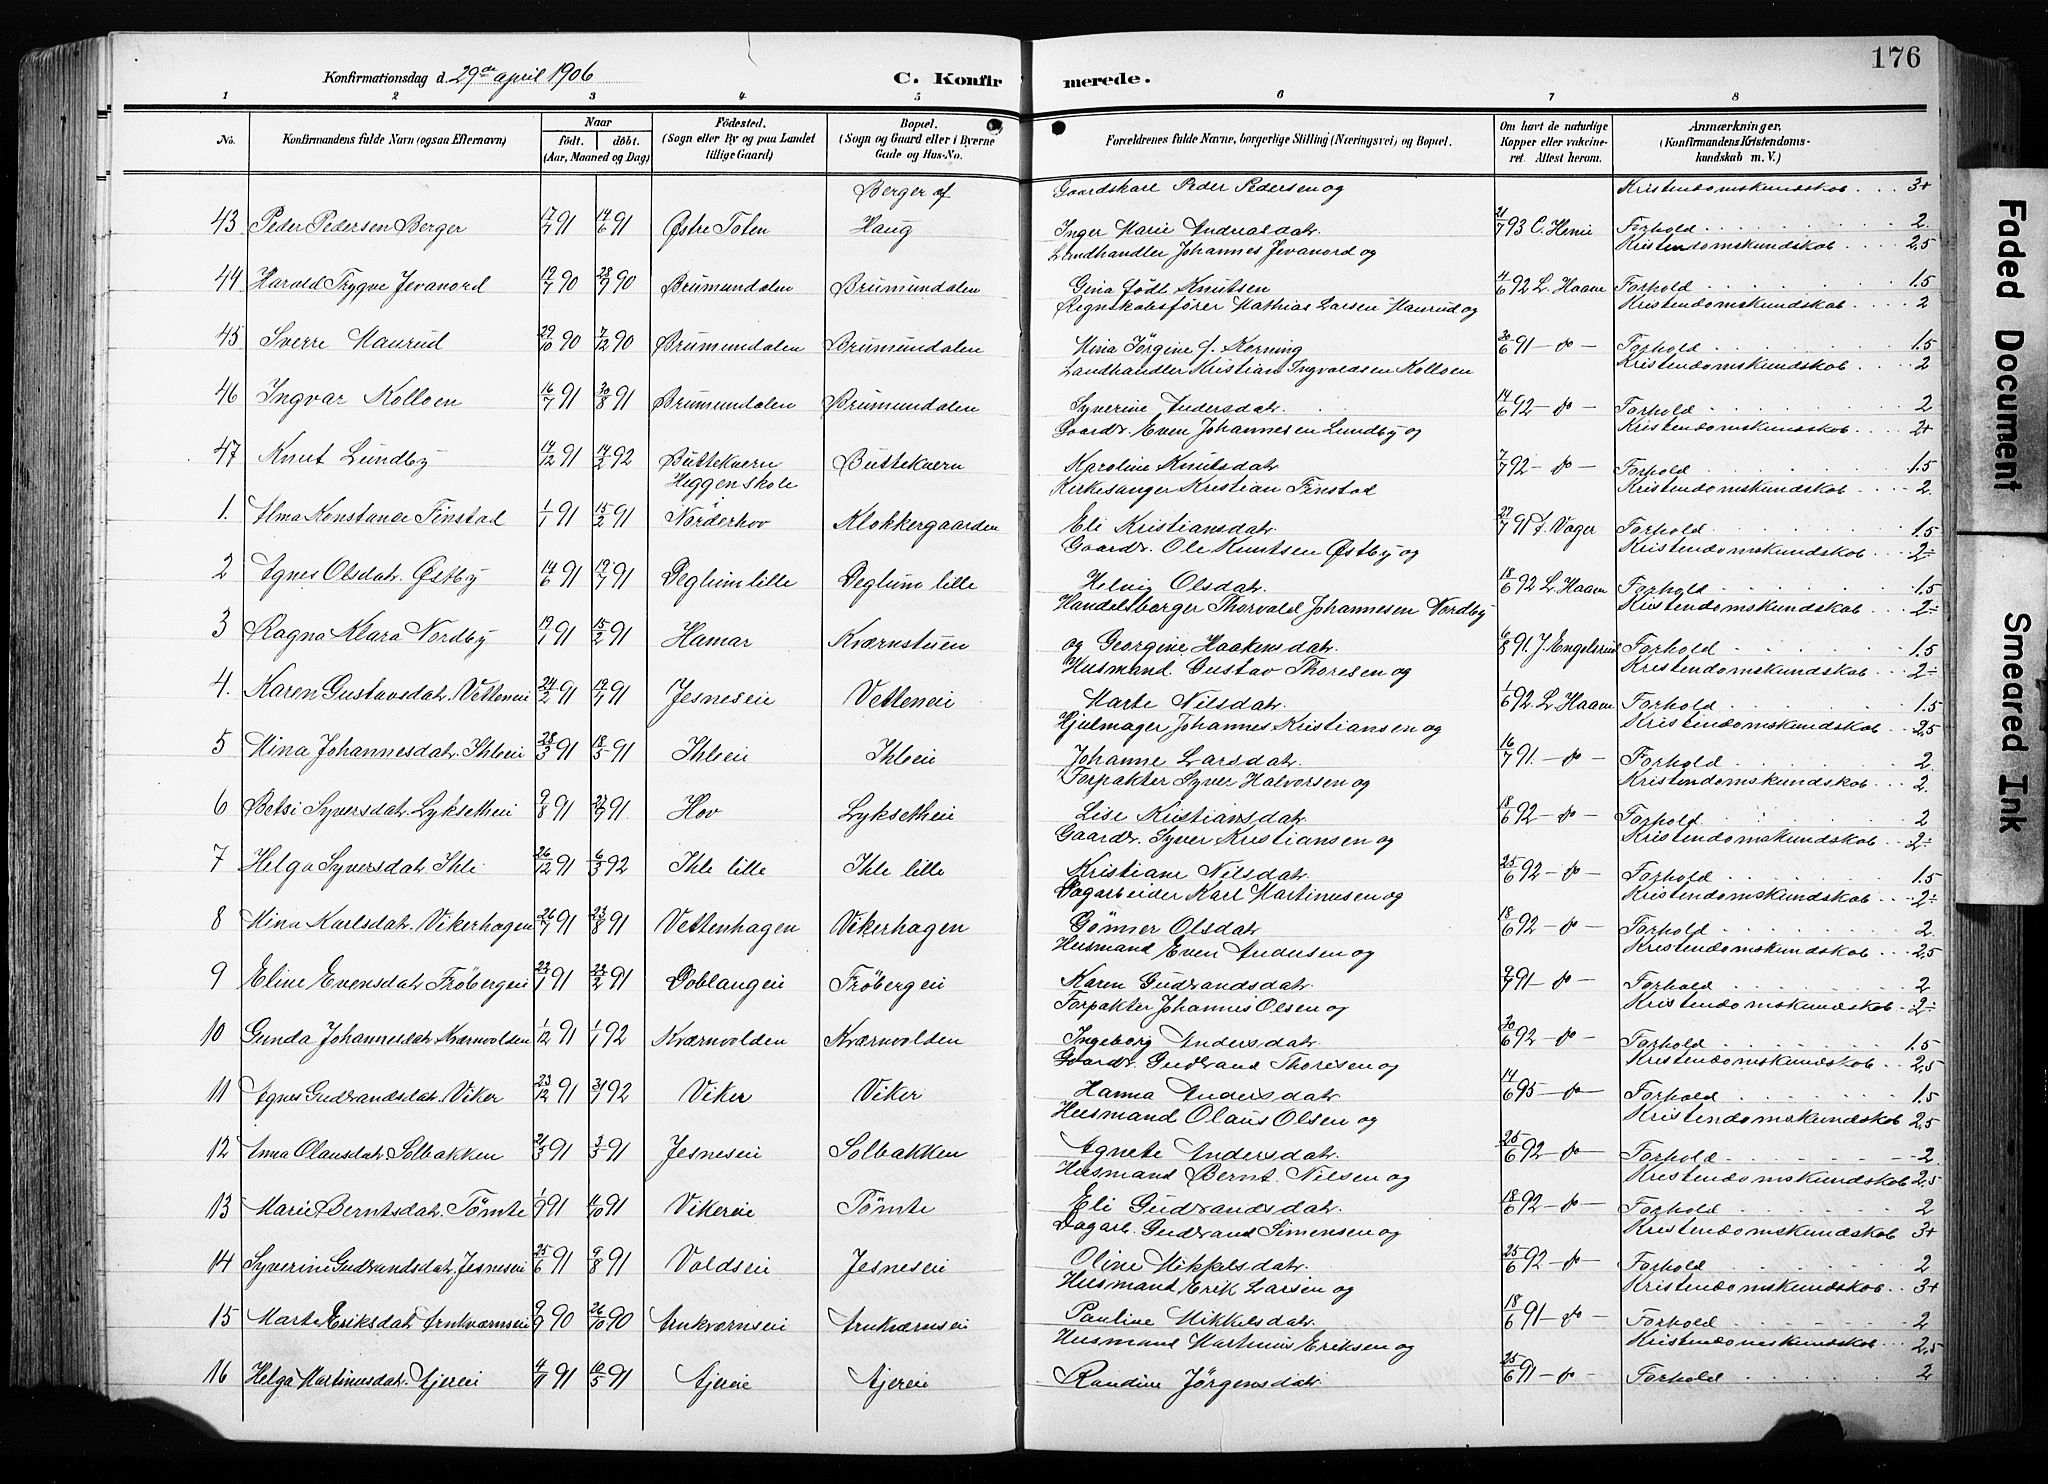 176
Konfirmationsdag d. 29de april 1906
C. Konfirmerede.
1 2 3 4 5 6 7 8
No. Konfirmandens fulde Navn (ogsaa Efternavn) Naar født. døbt. (Aar, Maaned og Dag) Födested. (Sogn eller By og paa Landet tillige Gaard) Bopæl. (Sogn og Gaard eller i Byerne Gade og Hus-No. Forældrenes fulde Navne, borgerlige Stilling (Næringsvei) og Bopæl. Om havt de naturlige Kopper eller vakcineret. Attest herom. Anmærkninger. (Konfirmandens Kristendomskundskab m. V.)
Berger af Gaardskarl Peder Pedersen og Kristendomskundskab . . . 3+
43 Peder Pedersen Berger 17/4 91 14/6 91 Østre Toten Haug Inger Marie Andreasdatr. 21/7 93 C. Henie Forhold 2
Landhandler Johannes Jevanord og Kristendomskundskab 2,5
44 Harald Trygve Jevanord 19/7 90 28/9 90 Brumundalen Brumundalen Gina født Knutsen 4/6 92 L. Haam Forhold 1.5
Regnskabsfører Mathias Larsen Maurud og Kristendomskundskab 2
45 Sverre Maurud 29/10 90 7/12 90 Brumundalen Brumundalen Mina Jörgine f. Korning 30/6 91 - do - Forhold 1.5
Landhandler Kristian Ingvaldsen Kolloen Kristendomskundskab 2
46 Ingvar Kolloen 16/7 91 30/8 91 Brumundalen Brumundalen Syverine Andersdatr. 14/6 92 - do - Forhold 2
Gaardr. Even Johannesen Lundby og Kristendomskundskab 2+
47 Knut Lundby 17/12 91 14/2 92 Buttekvern Buttekvern Karoline Knutsdatr 7/7 92 - do - Forhold 1.5
Heggen skole Kirkesanger Kristian Finstad Kristendomskundskab 2.
1. Alma Konstance Finstad 1/1 91 15/2 91 Norderhov Klokkergaarden Eli Kristiansdatr. 27/7 91 F. Vager Forhold 1.5
Gaardr. Ole Knutsen Østby og Kristendomskundskab 2÷
2 Agnes Olsdatr. Østby 14/6 91 19/7 91 Deglum lille Deglum lille Helvig Olsdatr. 18/6 92 L. Haam Forhold 1.5
Handelsborger Thorvald Johannesen Nordby Kristendomskundskab 2÷
3 Ragna Klara Nordby 19/1 91 15/2 91 Hamar Kværnstuen og Georgine Haakensdatr. 6/8 91. J. Engelsrud Forhold 1.5
Husmand. Gustav Thoresen og Kristendomskundskab 2÷
4. Karen Gustavsdatr. Vetteneie 24/2 91 19/4 91 Jesneseie Vetteneie Marte Nilsdatr. 1/6 92 L. Haam Forhold 1.5
Hjulmager Johannes Kristiansen og Kristendomskundskab 2,5
5 Mina Johannesdatr. Ihleeie 28/3 91 18/5 91 Ihleeie Ihleeie Johanne Larsdatr. 16/7 91. - do - Forhold 2
Forpakter Syver Halvorsen og Kristendomskundskab 2.
6 Betsi Syversdatr. Lyksetheie 9/8 91 27/9 91 Hov Lyksetheie Lise Kristiansdatr. 18/6 92 - do - Forhold 2
Gaardr. Syver Kristiansen og Kristendomskundskab 2÷
7 Helga Syversdatr. Ihle 26/12 91 6/3 92 Ihle lille Ihle lille Kristiane Nilsdatr. 25/6 92 - do - Forhold 1.5
Dagarbeider Karl Martinusen og Kristendomskundskab 2÷
8 Mina Karlsdatr. Vikerhagen 26/7 91 23/8 91 Vettenhagen Vikerhagen Gönner Olsdatr. 18/6 92 - do - Forhold 2.
Husmand Even Andersen og Kristendomskundskab 2,5
9 Eline Evensdatr Fröbergeie 22/1 91 22/2 91 Doblangeie Fröbergeie Karen Gudrandsdatr. 9/7 91 - do - Forhold 2
Forpakter Johannes Olsen og Kristendomskundskab 2÷
10 Gunda Johannesdatr Kværnvolden 1/12 91 1/1 92 Kværnvolden Kværnvolden Ingeborg Andersdatr. 30/6 92 - do - Forhold 1.5
Gaardr. Gudrand Thoresen og Kristendomskundskab 2,5
11 Agnes Gudrandsdatr. Viker 23/12 91 31/1 92 Viker Viker Hanna Andersdatr. 14/6 95 - do - Forhold 1.5
Husmand Olaus Olsen og Kristendomskundskab 2,5
12 Anna Olausdatr Solbakken 21/3 91 3/5 91 Jesneseie Solbakken Agnete Andersdatr. 25/6 92 - do - Forhold 2.
Husmand Bernt. Nilsen og Kristendomskundskab 2,5
13 Marie Berntsdatr. Tömte 1/9 91 4/10 91 Vikereie Tömte Eli Gudrandsdatr. 18/6 92 - do - Forhold 2
Dagarb. Gudrand Simensen og Kristendomskundskab 3+
14 Syverine Gudrandsdatr. Jesneseie 25/6 91 9/8 91 Voldseie Jesneseie Oline Mikkelsdatr. 25/6 92 - do - Forhold 2
Husmand Erik Larsen og Kristendomskundskab . . 3+
15 Marte Eriksdatr Arnkværnseie 9/9 90 26/10 90 Arnkværnseie Arnkværnseie Pauline Mikkelsdatr. 18/6 91 - do - Forhold 2
Husmand Martinus Eriksen og Kristendomskundskab 2,5
16 Helga Martinusdatr. Ajereie 4/4 91 10/5 91 Ajereie Ajereie Randine Jörgensdatr. 25/6 91 - do - Forhold 2
Faded Document
Smeared Ink